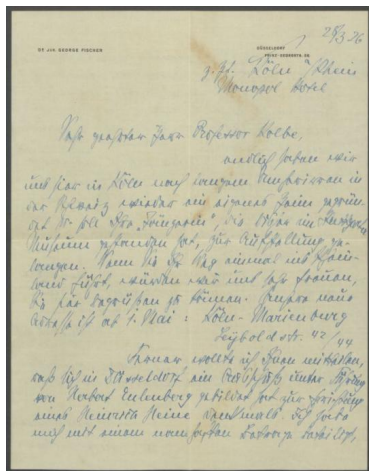 DR JUR. GEORGE FISCHER
DÜSSELDORF
25/3 26
z. Zt. Köln / Rhein
Monopol Hotel
Sehr geehrter Herr Professor Kolbe,
endlich haben wir
uns hier in Köln nach langem Umherirren in
der Schweiz wieder ein eigenes Heim gegrün-
det, so soll Ihre
Museum gefunden hat, zur Aufstellung ge-
langen. Wenn Sie Ihr Weg einmal ins Rhein-
land führt, würden wir uns sehr freuen,
Sie hier begrüßen zu können. Unsere neue
Adresse ist ab 1. Mai: Köln-Marienburg
42/44
Ferner wollte ich Ihnen mitteilen,
daß sich in Düsseldorf ein Ausschuß unter
von Herbert Eulenberg gebildet hat zur Errichtung
eines Heinrich Heine Denkmals. Ich habe
mich mit einem namhaften Betrage beteiligt,